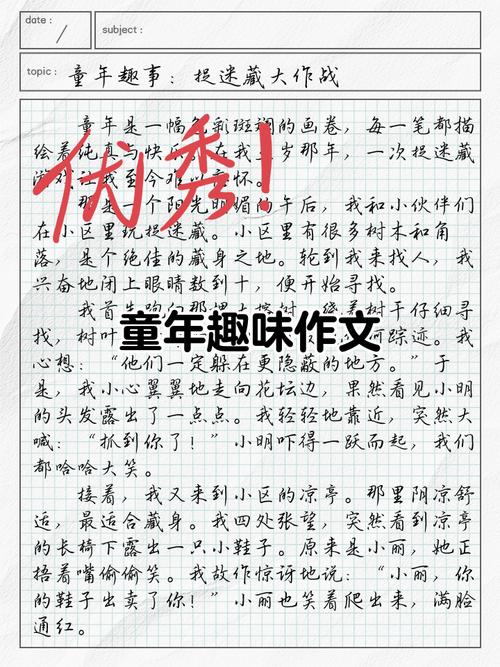 date:
/
subject:
topic:
童年趣事：捉迷藏大作战
童年是一幅色彩斑斓的画卷，每一笔都描
绘着纯真与快乐。在我岁那年，一次捉迷藏
游戏让我至今难以忘怀。
那是一个阳光明媚的午后，我和小伙伴们
在小区里玩捉迷藏。小区里有很多树木和角
落，是个绝佳的藏身之地。轮到我来找人，我
兴奋地闭上眼睛数到十，便开始寻找。
我首先跑向那棵大树，绕着树干仔细寻
找，树叶何踪迹。我
心想：“他们一定躲在更隐蔽的地方。”于
是，我小心翼翼地走向花坛边，果然看见小明
的头发露出了一点点。我轻轻地靠近，突然大
喊：“抓到你了！”小明吓得一跃而起，我们
都哈哈大笑。
接着，我又来到小区的凉亭。那里阴凉舒
适，最适合藏身。我四处张望，突然看到凉亭
的长椅下露出一只小鞋子。原来是小丽，她正
捂着嘴偷偷笑。我故作惊讶地说：“小丽，你
的鞋子出卖了你！”小丽也笑着爬出来，满脸
通红。
优秀！
童年趣味作文